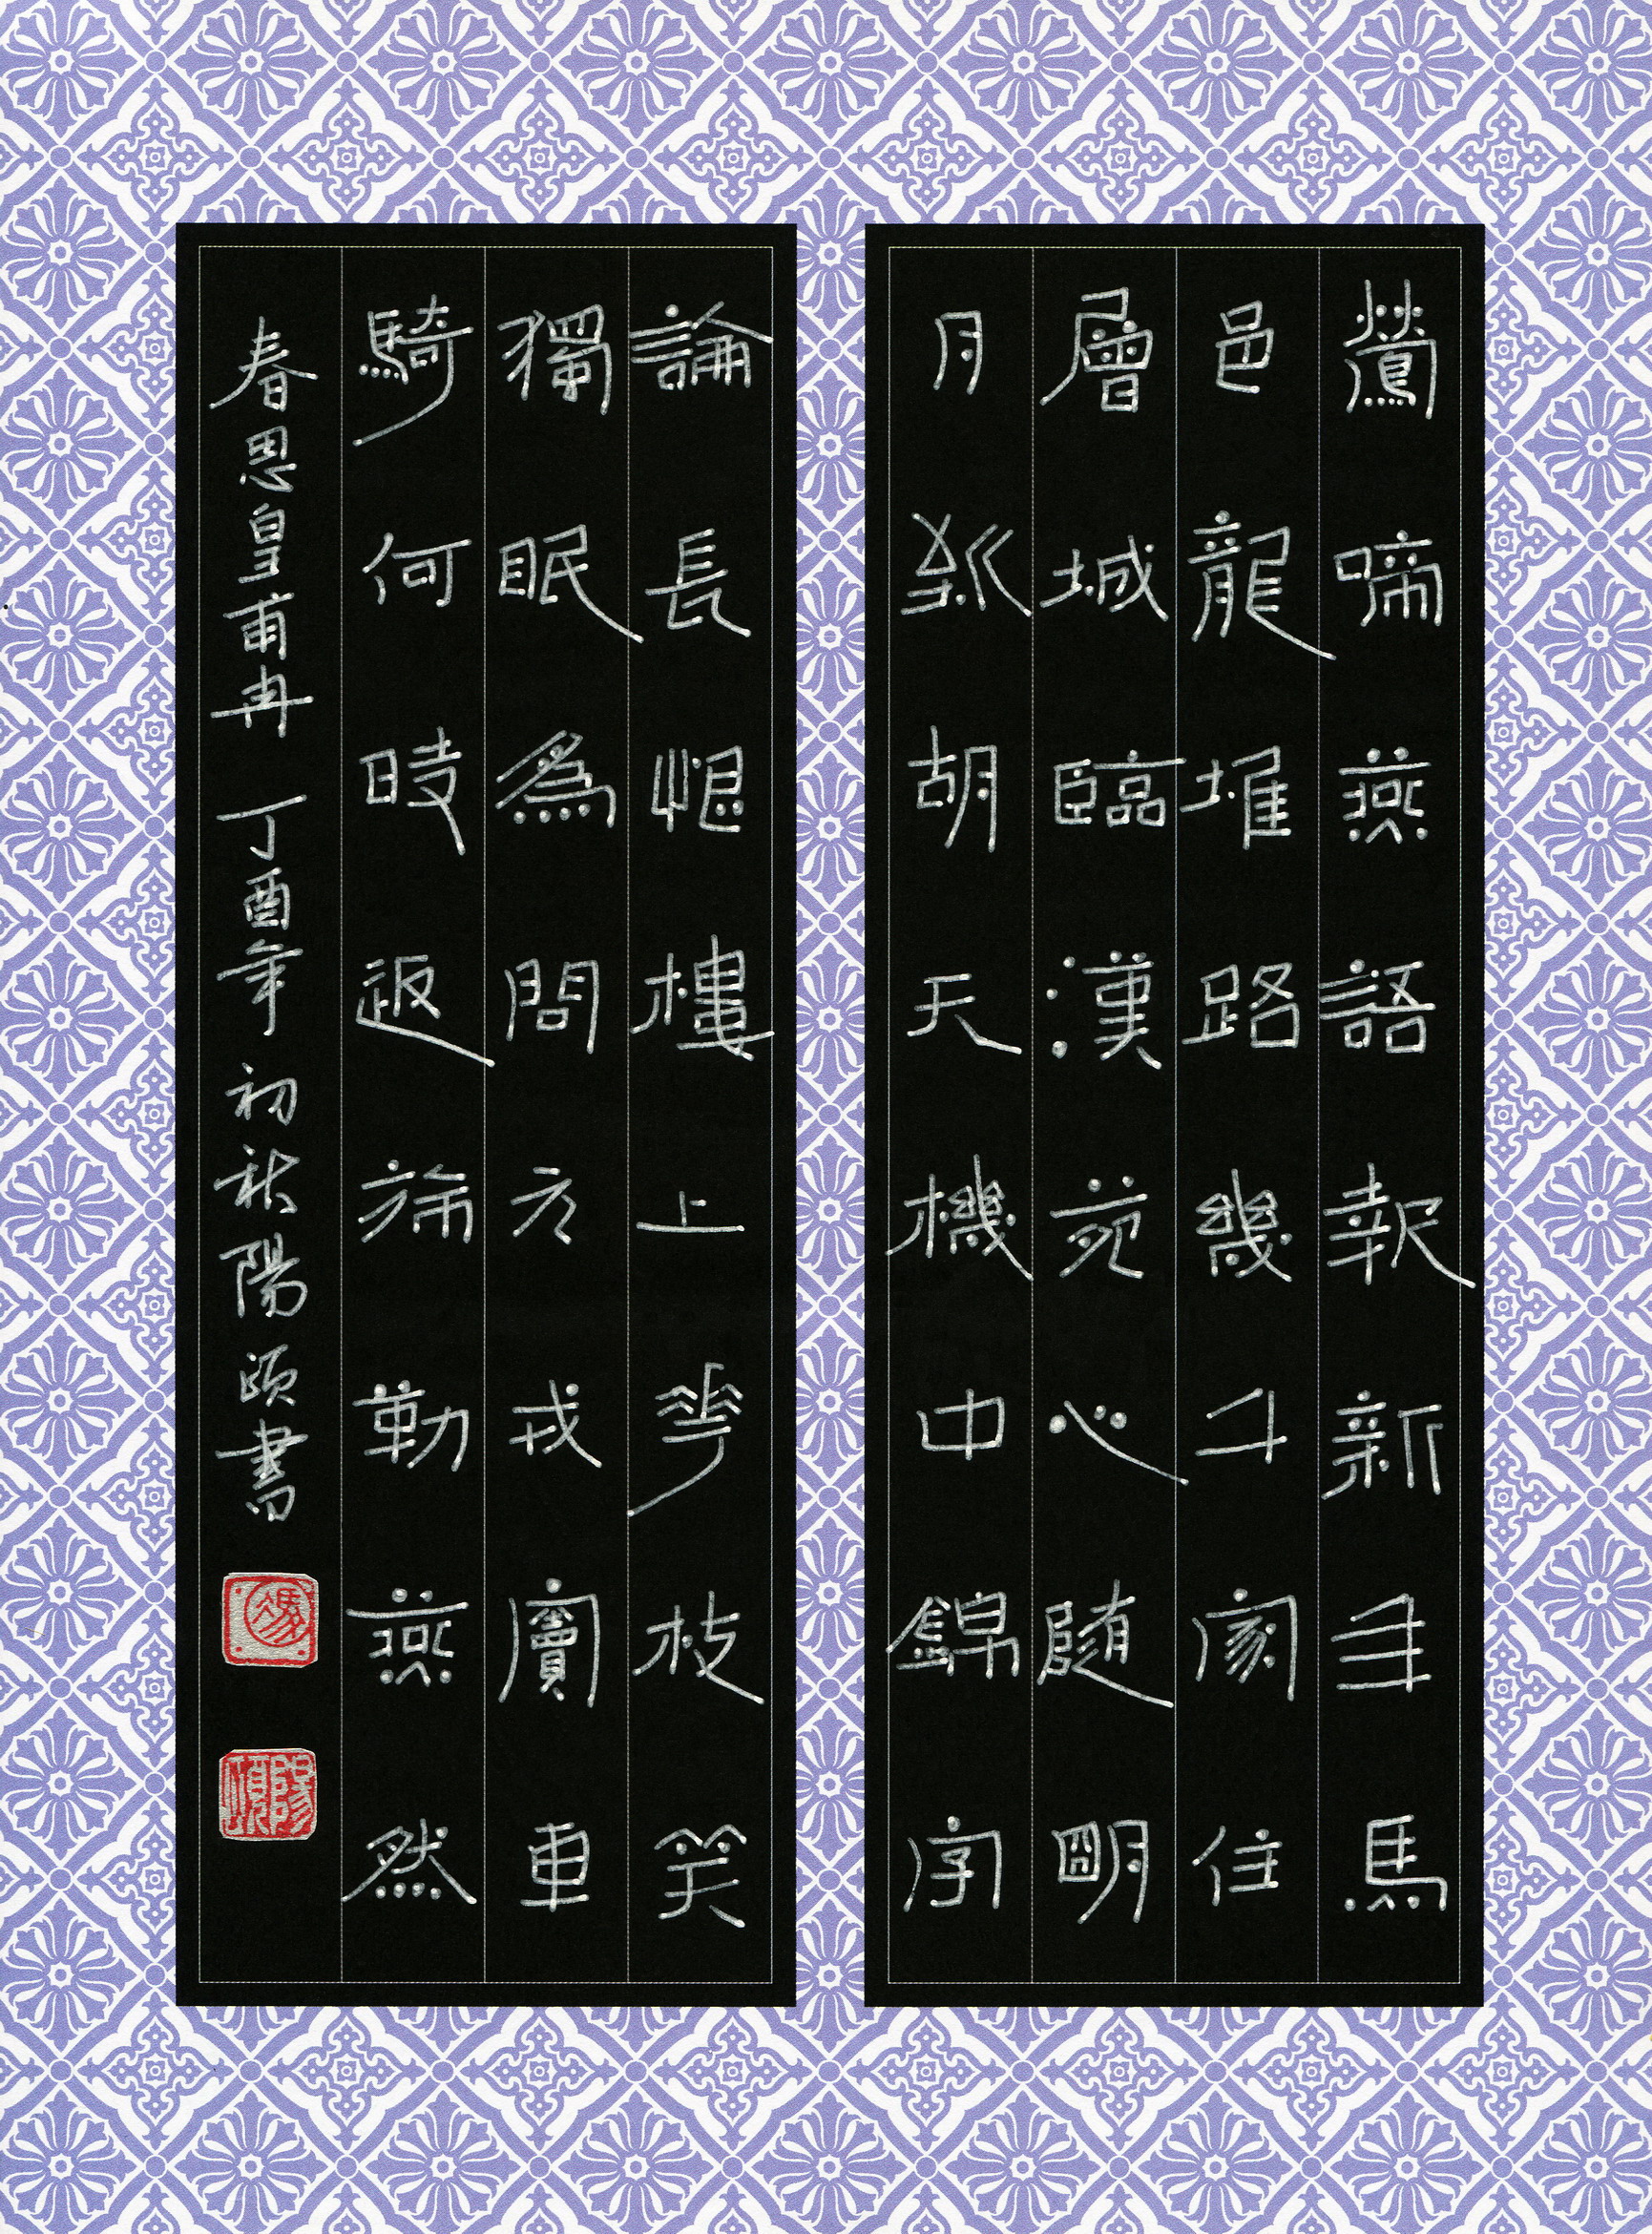 鶯啼燕語報新年馬
邑龍堆路幾千家住
層城臨漢苑心隨明
月到胡天機中錦字
論長恨樓上花枝笑
獨眠爲問元戎竇車
騎何時返旆勒燕然
春思皇甫冉 丁酉年初秋陽頤書